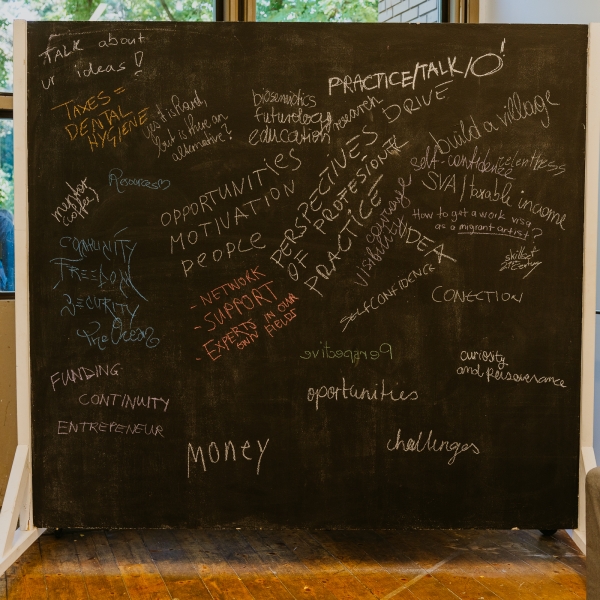 TALK about
ur ideas!
PRACTICE/TALK/O!
TAXES =
DENTAL
HYGIENE
yes it is hard,
but is there an
alternative?
biosemiotics
futurology
education
research
DRIVE
build a village
self-confidence
relentness
SVA/taxable income
How to get a work visa
as a migrant artist?
mentor
(coffee)
Resources
OPPORTUNITIES
MOTIVATION
PEOPLE
PERSPECTIVES
OF PROFESIONAL
PRACTICE
courage
visibility
IDEA
SELFCONFIDENCE
CONECTION
COMUNITY
FREEDOM
SECURITY
The Ocean
- NETWORK
- SUPPORT
- EXPERTS IN OUR
OWN FIELDS
Perspective
curiosity
and perseverance
FUNDING
CONTINUITY
ENTREPENEUR
oportunities
money
challenges